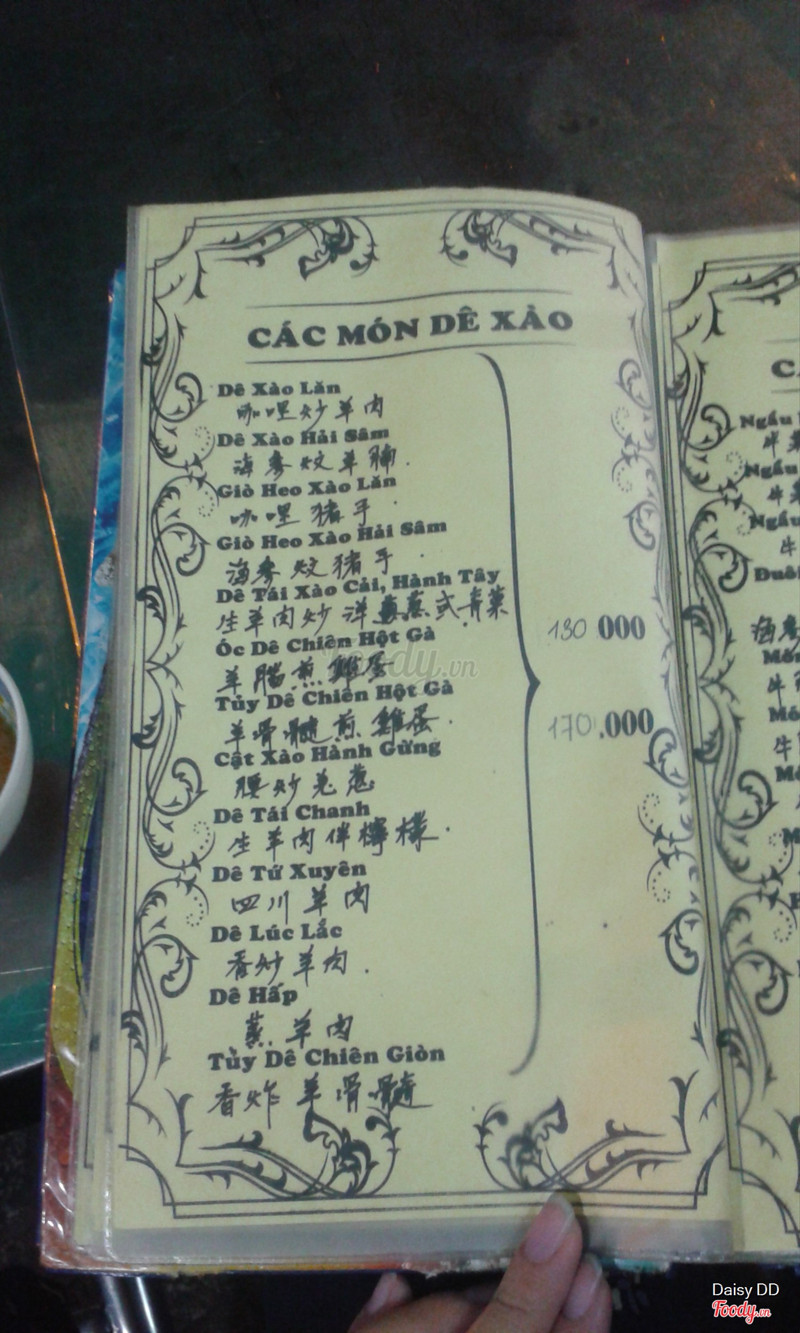 CÁC MÓN DÊ XÀO
Dê Xào Lăn
咖哩炒羊肉
Dê Xào Hải Sâm
海參炆羊腩.
Giò Heo Xào Lăn
咖哩豬手
Giò Heo Xào Hải Sâm
海參炆豬手
Dê Tái Xào Cải, Hành Tây
生羊肉炒洋蔥 式青菜
Óc Dê Chiên Hột Gà
羊腦煎雞蛋
Tủy Dê Chiên Hột Gà
羊骨髓煎雞蛋.
Cật Xào Hành Gừng
腰炒羌蔥
Dê Tái Chanh
生羊肉伴檸檬.
Dê Tứ Xuyên
四川羊肉
Dê Lúc Lắc
香炒羊肉.
Dê Hấp
蒸羊肉
Tủy Dê Chiên Giòn
香炸羊骨髓
130 000
170.000
Foody.vn
Ngầu
牛
Ngầu
牛
Ngầu
牛
Đuôi
海參
牛
牛
Daisy DD
Foody.vn